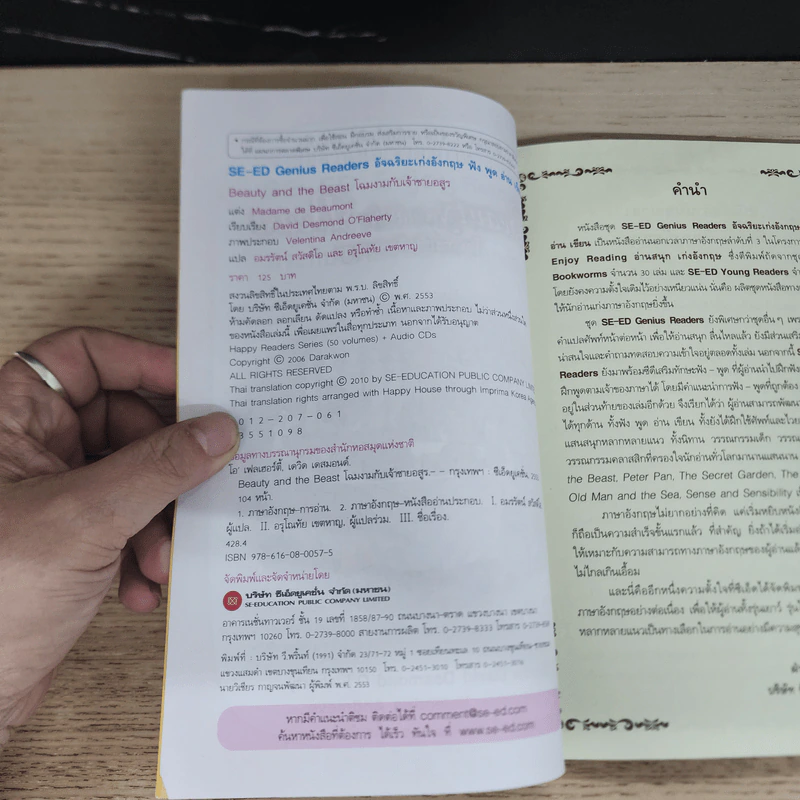 • กรณีที่ต้องการซื้อจำนวนมาก เพื่อใช้สอน ฝึกอบรม ส่งเสริมการขาย หรือเป็นของขวัญพิเศษ
SE-ED Genius Readers อัจฉริยะเก่งอังกฤษ ฟัง พูด อ่าน
Beauty and the Beast โฉมงามกับเจ้าชายอสูร
แต่ง Madame de Beaumont
เรียบเรียง David Desmond O'Flaherty
ภาพประกอบ Velentina Andreeve
แปล อมรรัตน์ สวัสดิโอ และ อรุโณทัย เขตหาญ
ราคา 125 บาท
สงวนลิขสิทธิ์ในประเทศไทยตาม พ.ร.บ. ลิขสิทธิ์
โดย บริษัท ซีเอ็ดยูเคชั่น จำกัด (มหาชน) © พ.ศ. 2553
ห้ามคัดลอก ลอกเลียน ดัดแปลง หรือทำซ้ำ เนื้อหาและภาพประกอบ ไม่ว่าส่วนหนึ่งส่วนใด
ของหนังสือเล่มนี้ เพื่อเผยแพร่ในสื่อทุกประเภท นอกจากได้รับอนุญาต
Happy Readers Series (50 volumes) + Audio CDs
Copyright © 2006 Darakwon
ALL RIGHTS RESERVED
Thai translation copyright © 2010 by SE-EDUCATION PUBLIC COMPANY
Thai translation rights arranged with Happy House through Imprima Korea
012-207-061
3551098
ข้อมูลทางบรรณานุกรมของสำนักหอสมุดแห่งชาติ
โอ' เฟลเฮอร์ตี้, เดวิด เดสมอนด์.
Beauty and the Beast โฉมงามกับเจ้าชายอสูร.-- กรุงเทพฯ : ซีเอ็ดยูเคชั่น,
104 หน้า.
1. ภาษาอังกฤษ--การอ่าน. 2. ภาษาอังกฤษ--หนังสืออ่านประกอบ. I. อมรรัตน์
ผู้แปล. II. อรุโณทัย เขตหาญ, ผู้แปลร่วม. III. ชื่อเรื่อง.
428.4
ISBN 978-616-08-0057-5
จัดพิมพ์และจัดจำหน่ายโดย
บริษัท ซีเอ็ดยูเคชั่น จำกัด (มหาชน)
SE-EDUCATION PUBLIC COMPANY LIMITED
อาคารเนชั่นทาวเวอร์ ชั้น 19 เลขที่ 1858/87-90 ถนนบางนา-ตราด แขวงบางนา เขตบางนา
กรุงเทพฯ 10260 โทร. 0-2739-8000 สายงานการผลิต โทร. 0-2739-8333 โทรสาร
พิมพ์ที่ : บริษัท วี.พริ้นท์ (1991) จำกัด 23/71-72 หมู่ 1 ซอยเทียนทะเล 10 ถนนบางขุนเทียน-ชายทะเล
แขวงแสมดำ เขตบางขุนเทียน กรุงเทพฯ 10150 โทร. 0-2451-3010 โทรสาร 0-2451-3016
นายวิเชียร กาญจนพัฒนา ผู้พิมพ์ พ.ศ. 2553
หากมีคำแนะนำติชม ติดต่อได้ที่ comment@se-ed.com
ค้นหาหนังสือที่ต้องการ ได้เร็ว ทันใจ ที่ www.se-ed.com
คำนำ
หนังสือชุด SE-ED Genius Readers อัจฉริยะเก่งอังกฤษ
อ่าน เขียน เป็นหนังสืออ่านนอกเวลาภาษาอังกฤษลำดับที่ 3 ในโครงการ
Enjoy Reading อ่านสนุก เก่งอังกฤษ ซึ่งตีพิมพ์ถัดจากชุด
Bookworms จำนวน 30 เล่ม และ SE-ED Young Readers
โดยยังคงความตั้งใจเดิมไว้อย่างเหนียวแน่น นั่นคือ ผลิตชุดหนังสือ
ให้นักอ่านเก่งภาษาอังกฤษยิ่งขึ้น
ชุด SE-ED Genius Readers ยังพิเศษกว่าชุดอื่นๆ
คำแปลศัพท์หน้าต่อหน้า เพื่อให้อ่านสนุก ลื่นไหลแล้ว ยังมีส่วนเสริม
น่าสนใจและคำถามทดสอบความเข้าใจอยู่ตลอดทั้งเล่ม นอกจากนี้
Readers ยังมาพร้อมซีดีเสริมทักษะฟัง - พูด ที่ผู้อ่านนำไปฝึกฟัง
ฝึกพูดตามเจ้าของภาษาได้ โดยมีคำแนะนำการฟัง - พูดที่ถูกต้อง
อยู่ในส่วนท้ายของเล่มอีกด้วย จึงเรียกได้ว่า ผู้อ่านสามารถพัฒนา
ได้ทุกด้าน ทั้งฟัง พูด อ่าน เขียน ทั้งยังได้ฝึกใช้ศัพท์และไวยากรณ์
แสนสนุกหลากหลายแนว ทั้งนิทาน วรรณกรรมเด็ก
วรรณกรรมคลาสสิกที่ครองใจนักอ่านทั่วโลกมานานแสนนาน
the Beast, Peter Pan, The Secret Garden, The
Old Man and the Sea, Sense and Sensibility
ภาษาอังกฤษไม่ยากอย่างที่คิด แค่เริ่มหยิบหนังสือ
ก็ถือเป็นความสำเร็จขั้นแรกแล้ว ที่สำคัญ ยิ่งถ้าได้เริ่ม
ให้เหมาะกับความสามารถทางภาษาอังกฤษของผู้อ่านแล้ว
ไม่ไกลเกินเอื้อม
และนี่คืออีกหนึ่งความตั้งใจที่ซีเอ็ดได้จัดพิมพ์
ภาษาอังกฤษอย่างต่อเนื่อง เพื่อให้ผู้อ่านทั้งรุ่นเยาว์
หลากหลายแนวเป็นทางเลือกในการอ่านอย่างมีความสุข
บริษัท